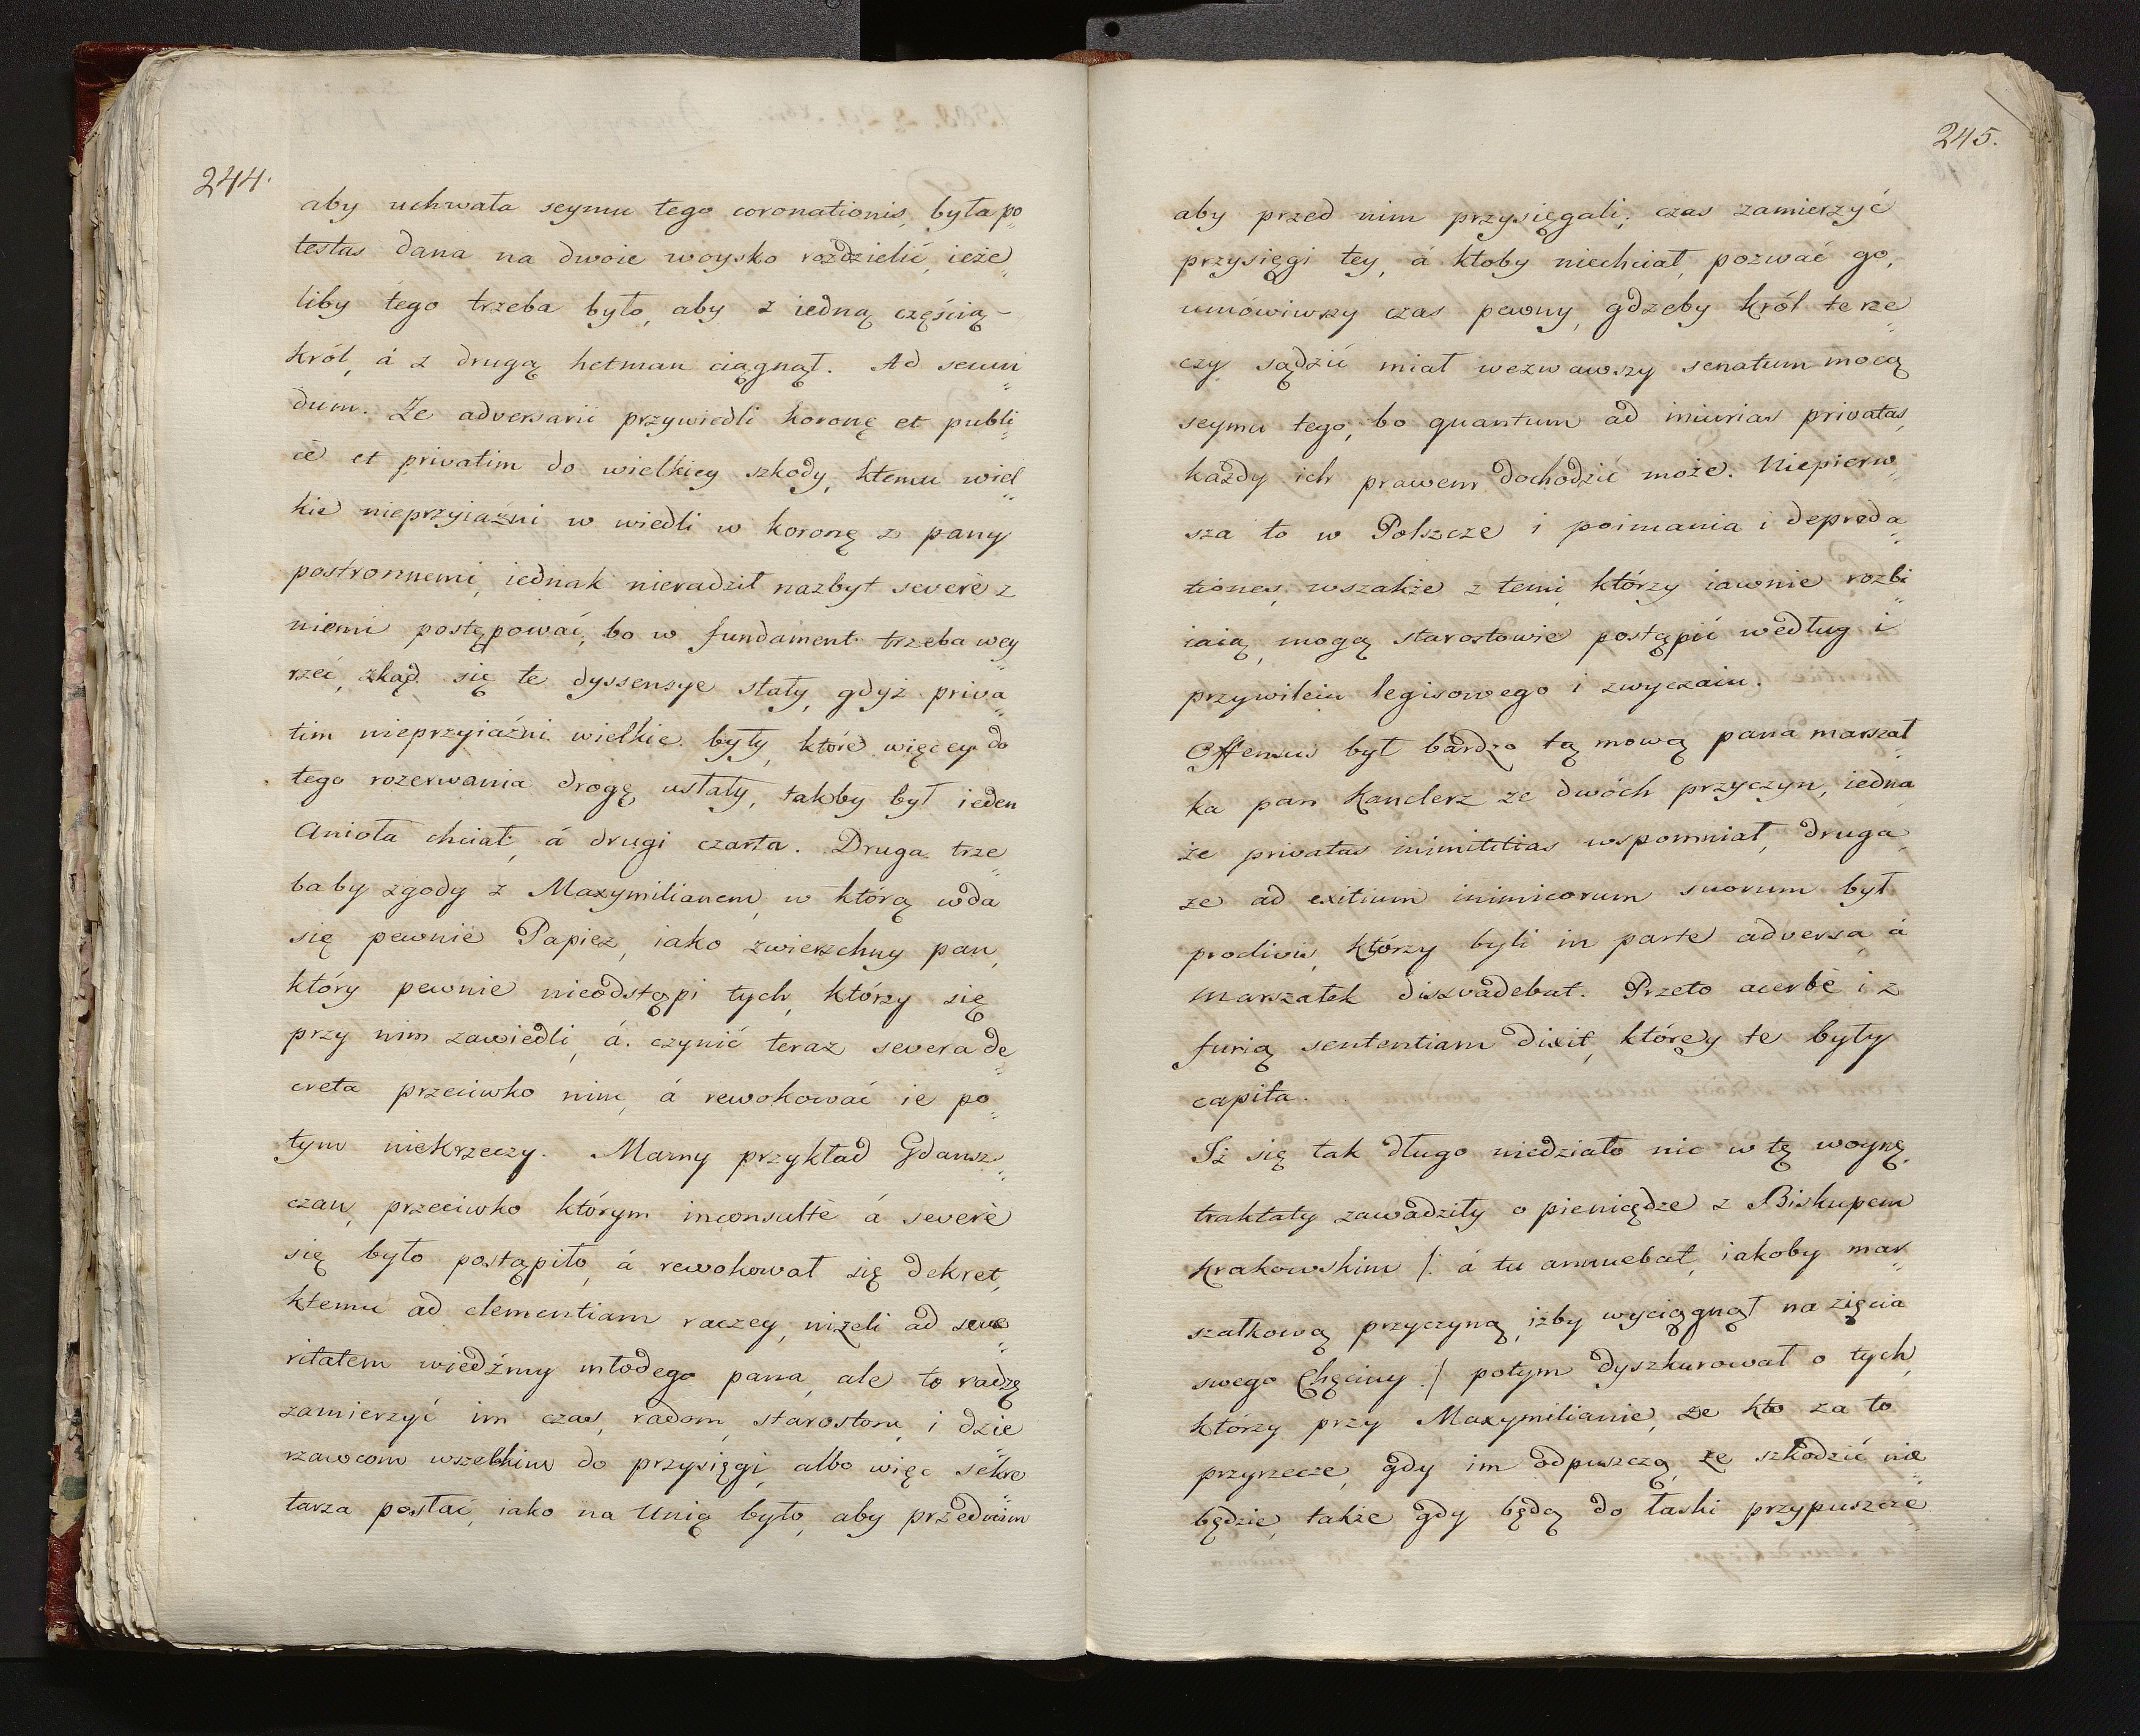 244.
aby uchwała seymu tego coronationis, była po„
testas dana na dwoie woysko rozdzielić, ieże„
liby tego trzeba było, aby z iedną częścią –
król, á z drugą hetman ciągnął. Ad secun„
dum. Że adversarii przywiedli koronę et publi„
ce et privatim do wielkiey szkody, ktemu wiel„
kie nieprzyiaźni w wiedli w koronę z pany
postronnemi, iednak nieradził nazbyt severè z
niemi postępować, bo w fundament trzeba wey„
rzeć, zkąd się te dyssensye stały, gdyż priva„
tim nieprzyiaźni wielkie były, które więcey do
tego rozerwania drogę usłały, takby był ieden
Anioła chciał, á drugi czarta. Druga trze„
ba by zgody z Maxymilianem, w którą wda
się pewnie Papież, iako zwierzchny pan,
który pewnie nieodstąpi tych, którzy się
przy nim zawiedli, á czynić teraz severa de„
creta przeciwko nim, á rewokować ie po„
tym niekrzeczy. Mamy przykład Gdansz„
czan, przeciwko którym inconsultè á severè
się było postąpiło, á rewokował się dekret,
ktemu ad clementiam raczey, niżeli ad seve„
ritatem wiedźmy młodego pana, ale to radzę
zamierzyć im czas, radom, starostom, i dzie„
rzawcom wszelkim do przysięgi, albo więc sekre„
tarza posłać, iako na Unią było, aby przednim
245.
aby przed nim przysięgali, czas zamierzyć
przysięgi tey, á ktoby niechciał, pozwać go,
umówiwszy czas pewny, gdzeby król te rze„
czy sądzić miał wezwawszy senatum mocą
seymu tego, bo quantum ad iniurias privatas,
każdy ich prawem dochodzić może. Niepierw„
sza to w Polszcze i poimania i depreda„
tiones, wszakże z temi którzy iawnie rozbi„
iaią, mogą starostowie postąpić według i
przywileiu legisowego i zwyczaiu.
Offensus był bardzo tą mową pana marszał„
ka pan Kanclerz ze dwóch przyczyn, iedna
że privatas inimititias wspomniał, druga,
że ad exitium inimicorum suorum był
proclivis, którzy byli in parte adversa, á
marszałek disvadebat. Przeto acerbè i z
furią sententiam dixit, którey te były
capita.
Iż się tak długo niedziało nic w tę woynę,
traktaty zawadziły o pieniądze z Biskupem
Krakowskim /: á tu annuebat, iakoby mar„
szałkową przyczyną, iżby wyciągnął na zięcia
swego Chęciny :/ potym dyszkurował o tych,
którzy przy Maxymilianie, że kto za to
przyrzecze, gdy im odpuszczą, że szkodzić nie„
będzie, także gdy będą do łaski przypuszcze„